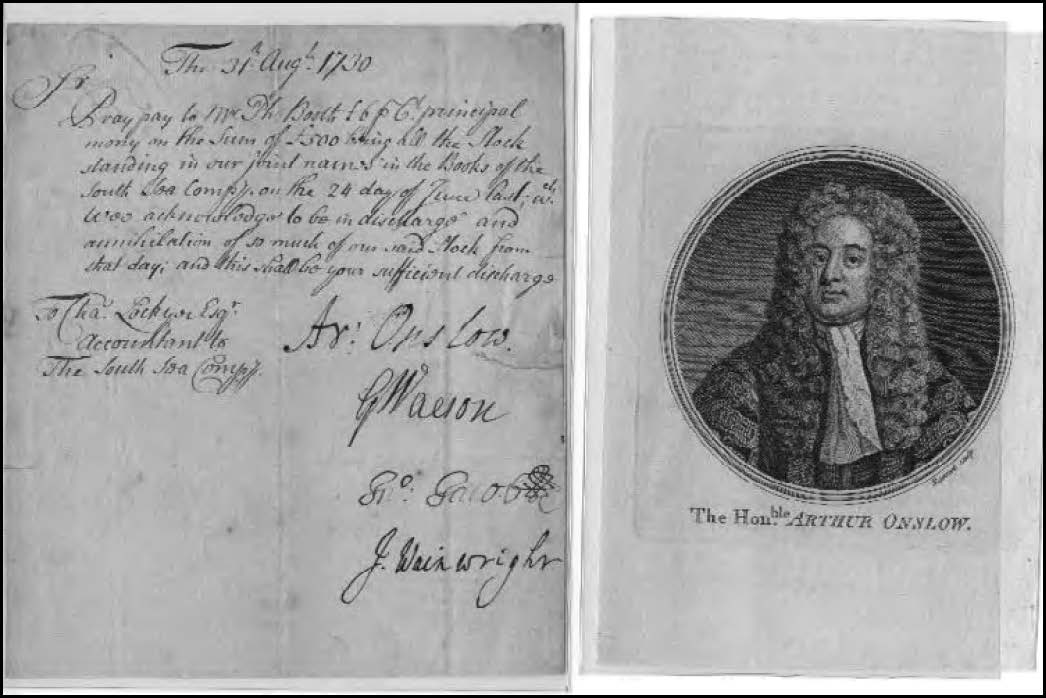 The 31th Augt. 1730
Sr
Pray pay to Mr Ph: Booth £6 p Ct. principal
mony on the Sum of £500 being all the Stock
standing in our joint names in the Books of the
South Sea Compy. on the 24 day of June last; wch.
Wee acknowledge to be in discharge and
annihilation of so much of our said Stock from
that day; and this shall be your sufficient discharge
To Cha: Lockyer Esqr.
Accountant to
The South Sea Compy.
Ar: Onslow.
Jno: Jacob
J. Wainwright
The Honble. ARTHUR ONSLOW.
sculp